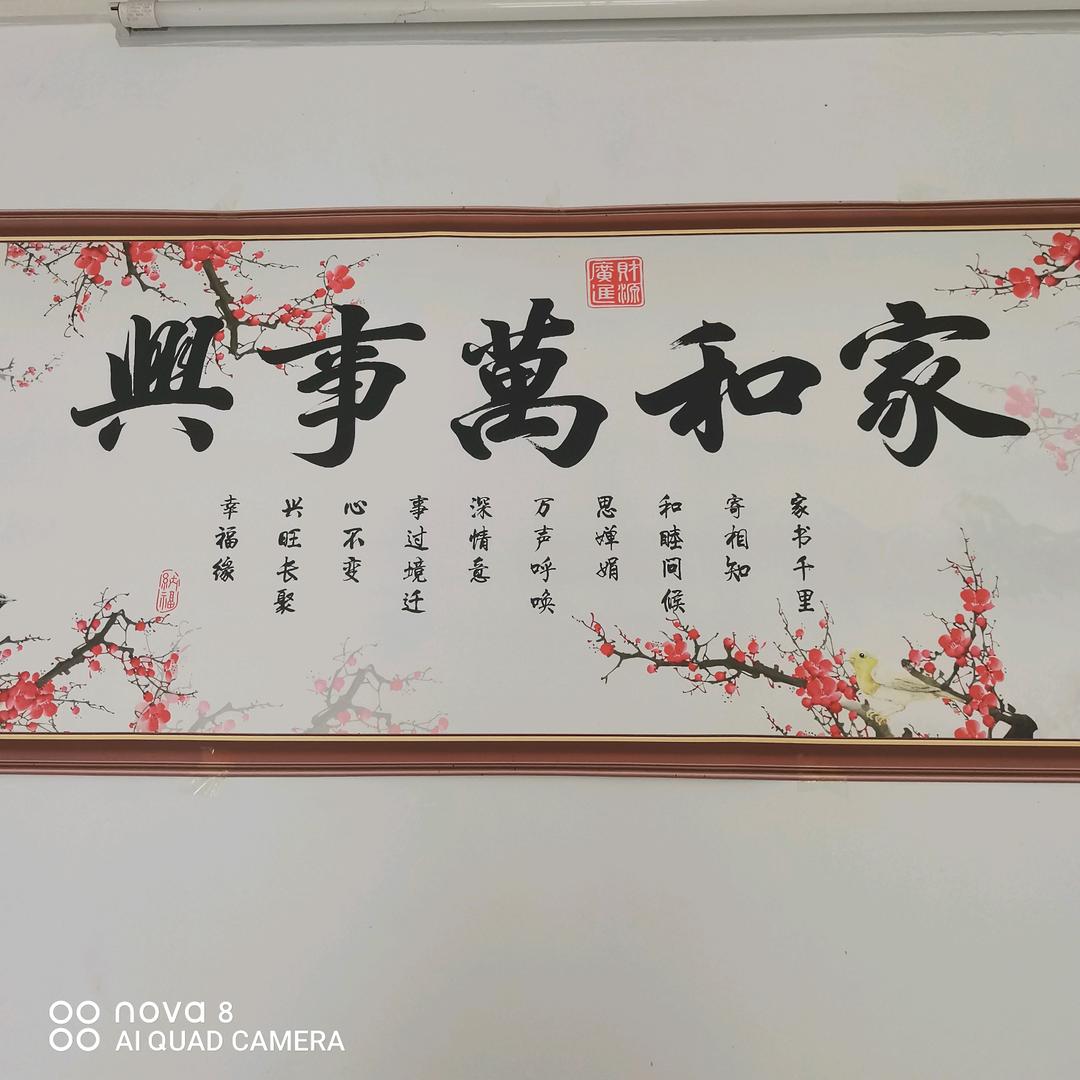 財源廣進
家和萬事興
家书千里
寄相知
和睦问候
思婵娟
万声呼唤
深情意
事过境迁
心不变
兴旺长聚
幸福缘
納福
nova 8
AI QUAD CAMERA